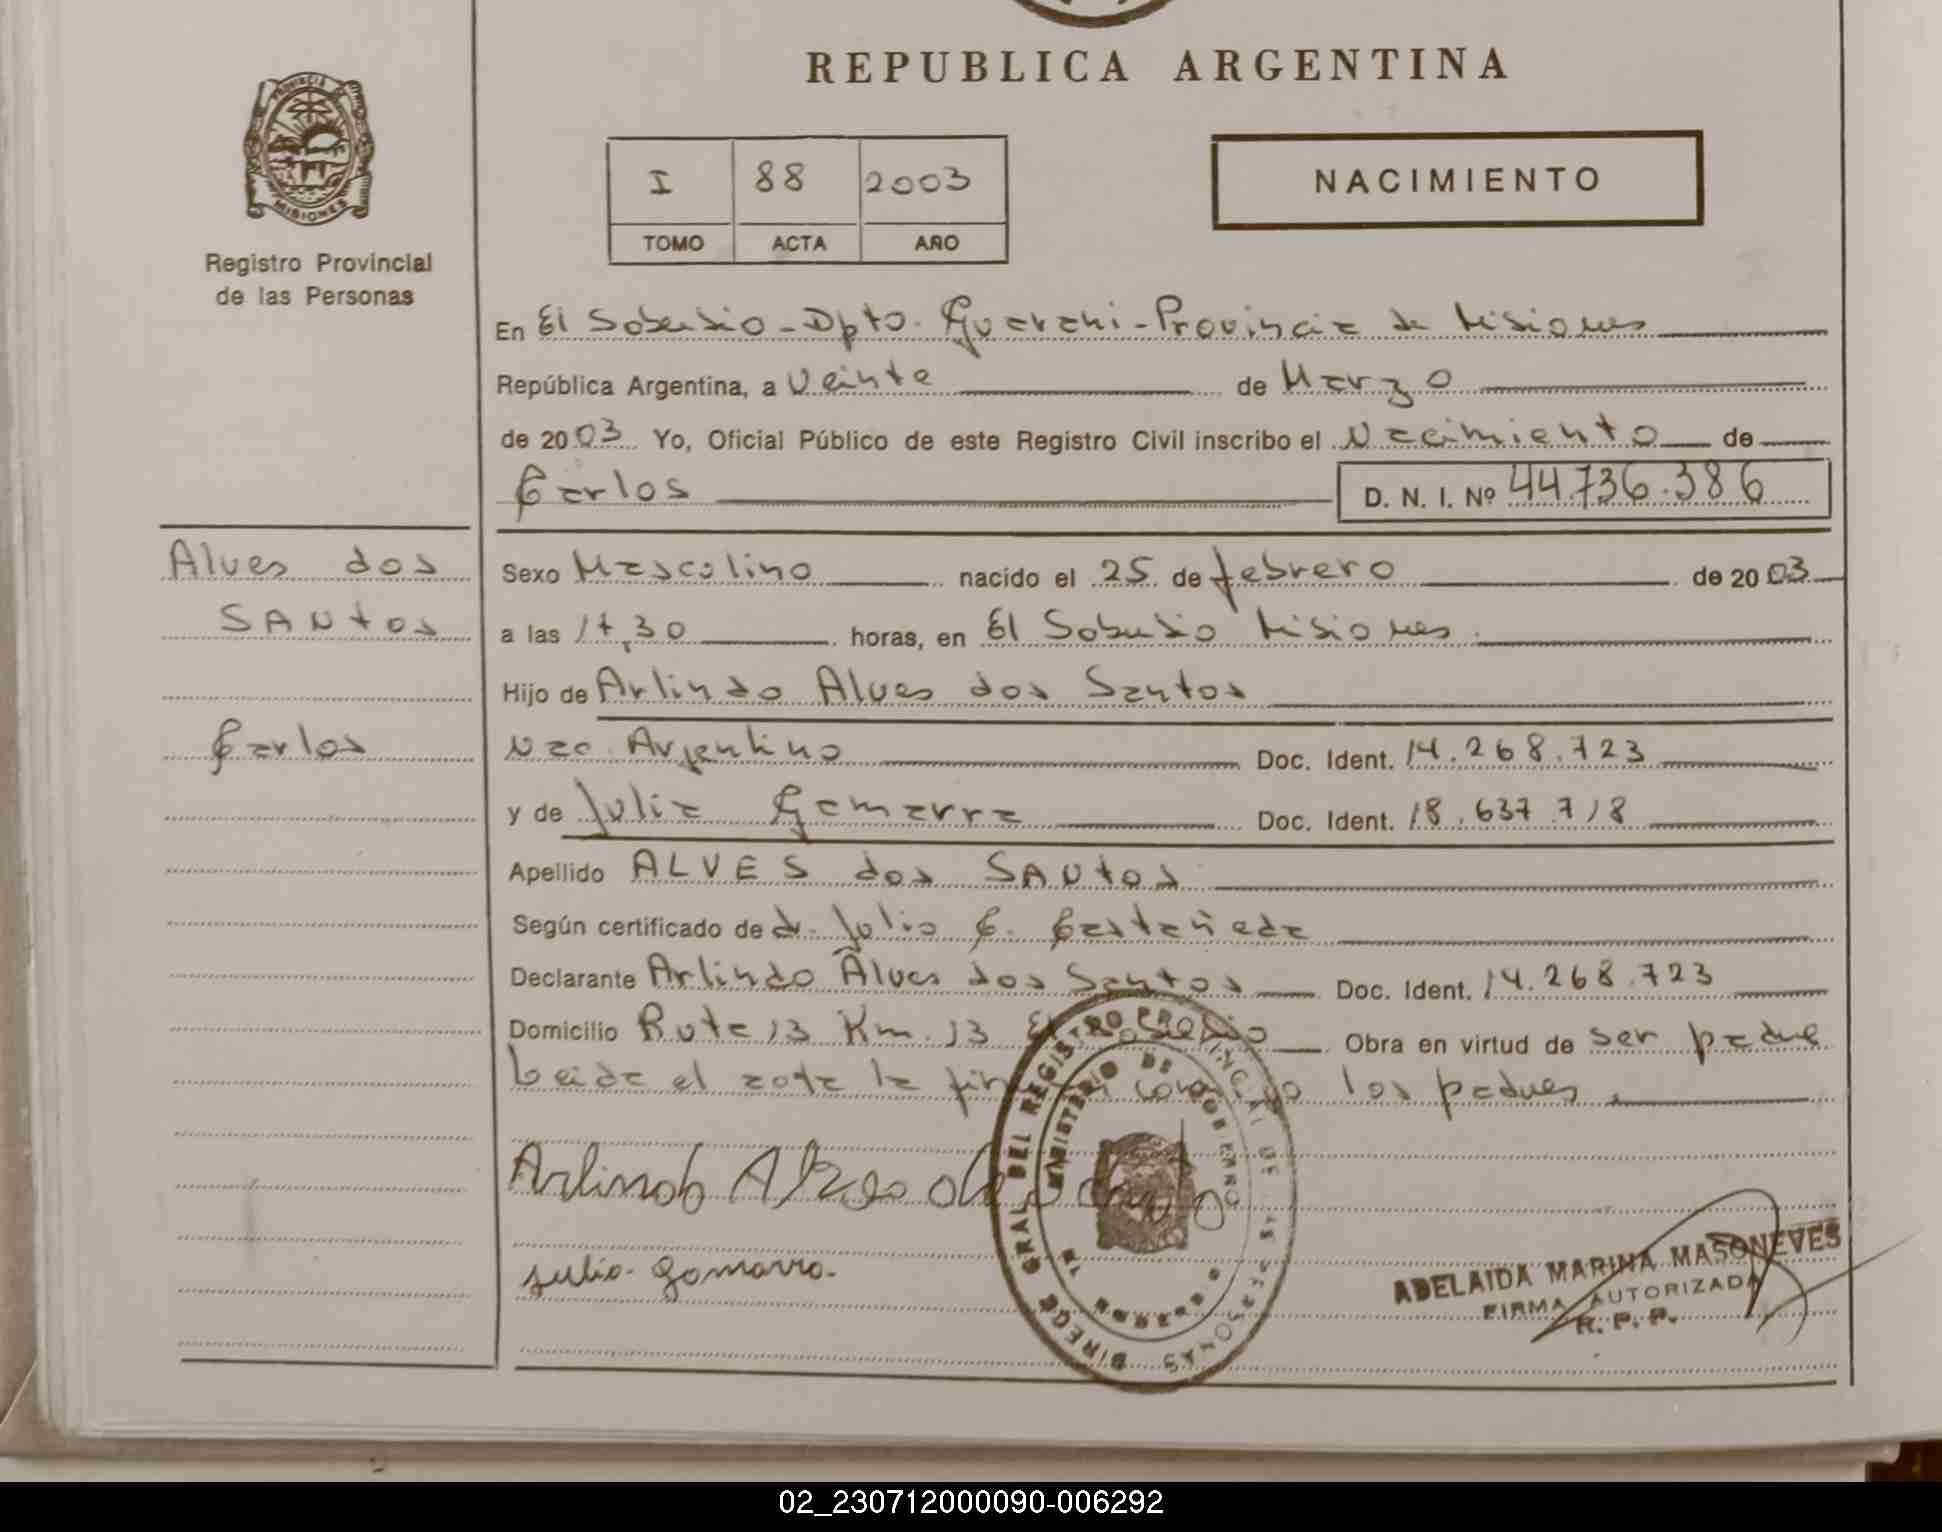 REPUBLICA ARGENTINA
PROVINCIA DE
MISIONES
Registro Provincial
de las Personas
I 88 2003
TOMO ACTA AÑO
NACIMIENTO
En El Soberbio - Dpto. Guarani - Provincia de Misiones
República Argentina, a Veinte de Marzo
de 2003 Yo, Oficial Público de este Registro Civil inscribo el Nacimiento de
Carlos D. N. I. Nº 44.736.386
Alves dos
Santos
Carlos
Sexo Masculino nacido el 25 de febrero de 2003
a las 17,30 horas, en El Soberbio Misiones
Hijo de Arlindo Alves dos Santos
Nac. Argentino Doc. Ident. 14.268.723
y de Julia Gamarra Doc. Ident. 18.637.718
Apellido ALVES dos SANtos
Según certificado de dr. Julio C. Castañeda
Declarante Arlindo Alves dos Santos Doc. Ident. 14.268.723
Domicilio Ruta 13 Km. 13 El Soberbio Obra en virtud de ser padre
Leida el acta la firman conmigo los padres
Arlindo Alves dos Santos
Julia Gamarra.
DIRECC. GRAL DEL REGISTRO PROVINCIAL DE LAS PERSONAS
MINISTERIO DE GOBIERNO
ADELAIDA MARINA MASONEVES
FIRMA AUTORIZADA
R. P. P.
02_230712000090-006292